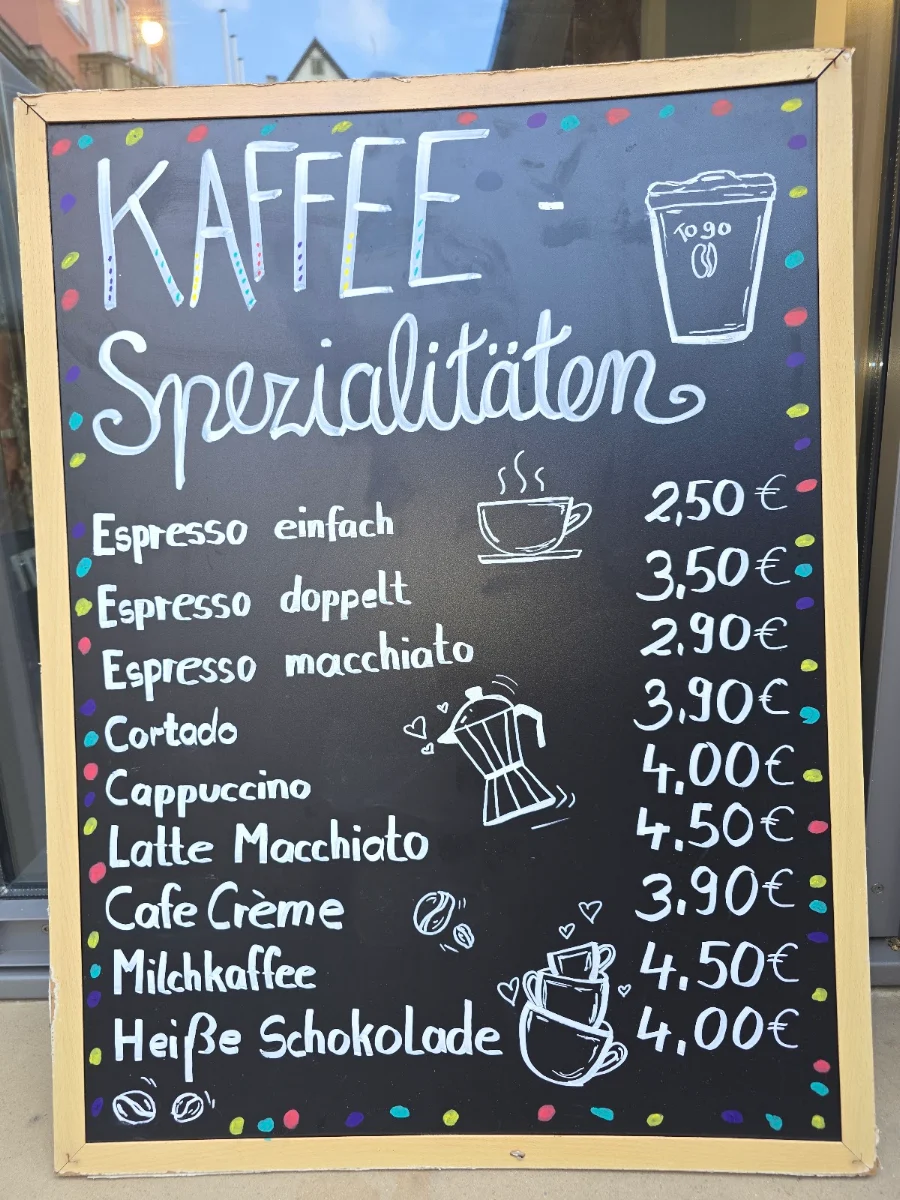 KAFFEE -
To go
Spezialitäten
Espresso einfach 2,50 €
Espresso doppelt 3,50 €
Espresso macchiato 2.90 €
Cortado 3.90 €
Cappuccino 4.00 €
Latte Macchiato 4.50 €
Cafe Crème 3.90 €
Milchkaffee 4.50 €
Heiße Schokolade 4.00 €